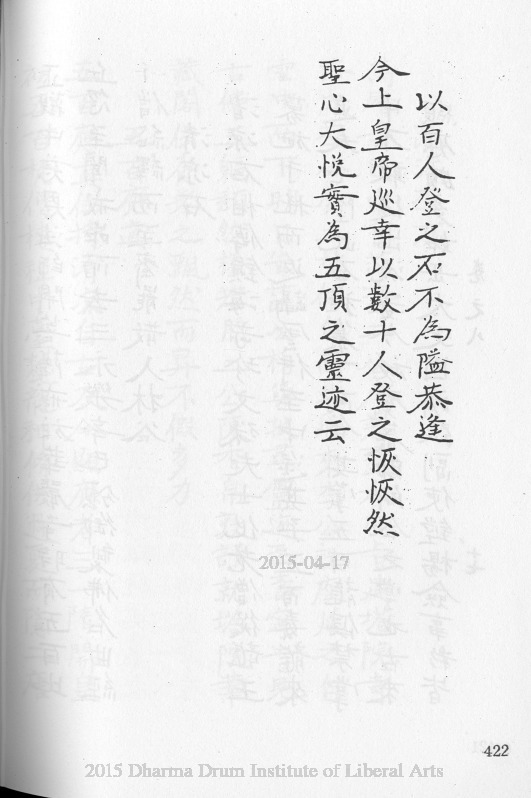 以百人登之石不為隘恭逢
今上皇帝巡幸以數十人登之恢恢然
聖心大悅實為五頂之靈迹云
2015-04-17
422
2015 Dharma Drum Institute of Liberal Arts